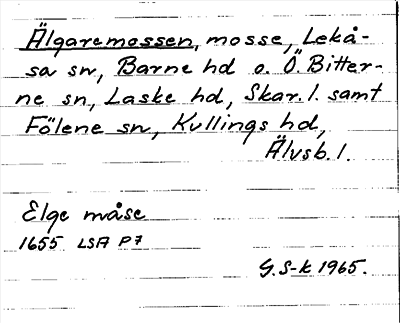 Älgaremossen, mosse, Lekå-
sa sn, Barne hd o. Ö. Bitter-
ne sn, Laske hd, Skar. l. samt
Fölene sn, Kullings hd,
Älvsb. l.
Elge måse
1655 LSA P7
G. S-k 1965.